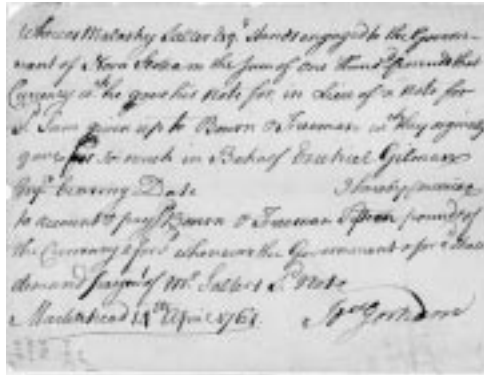 Whereas Malachy Salter Esqr. stands engaged to the Govern-
ment of Nova Scotia in the sum of one pounds that
Currency wch. he gave his note for, in Lieu of a note for
Sd. Sum given up to Bourn & Freeman wch. they originally
gave for so much in Behalf Ezekiel Gilman
Esqr. bearing Date I hereby promise
to account & pay sd. Bourn & Freeman pounds of
the Currency aforesd. whenever the Government afore sd. shall
demand paymt. of Mr. Salters Sd. Note
Marblehead 14th April 1761. Gorham